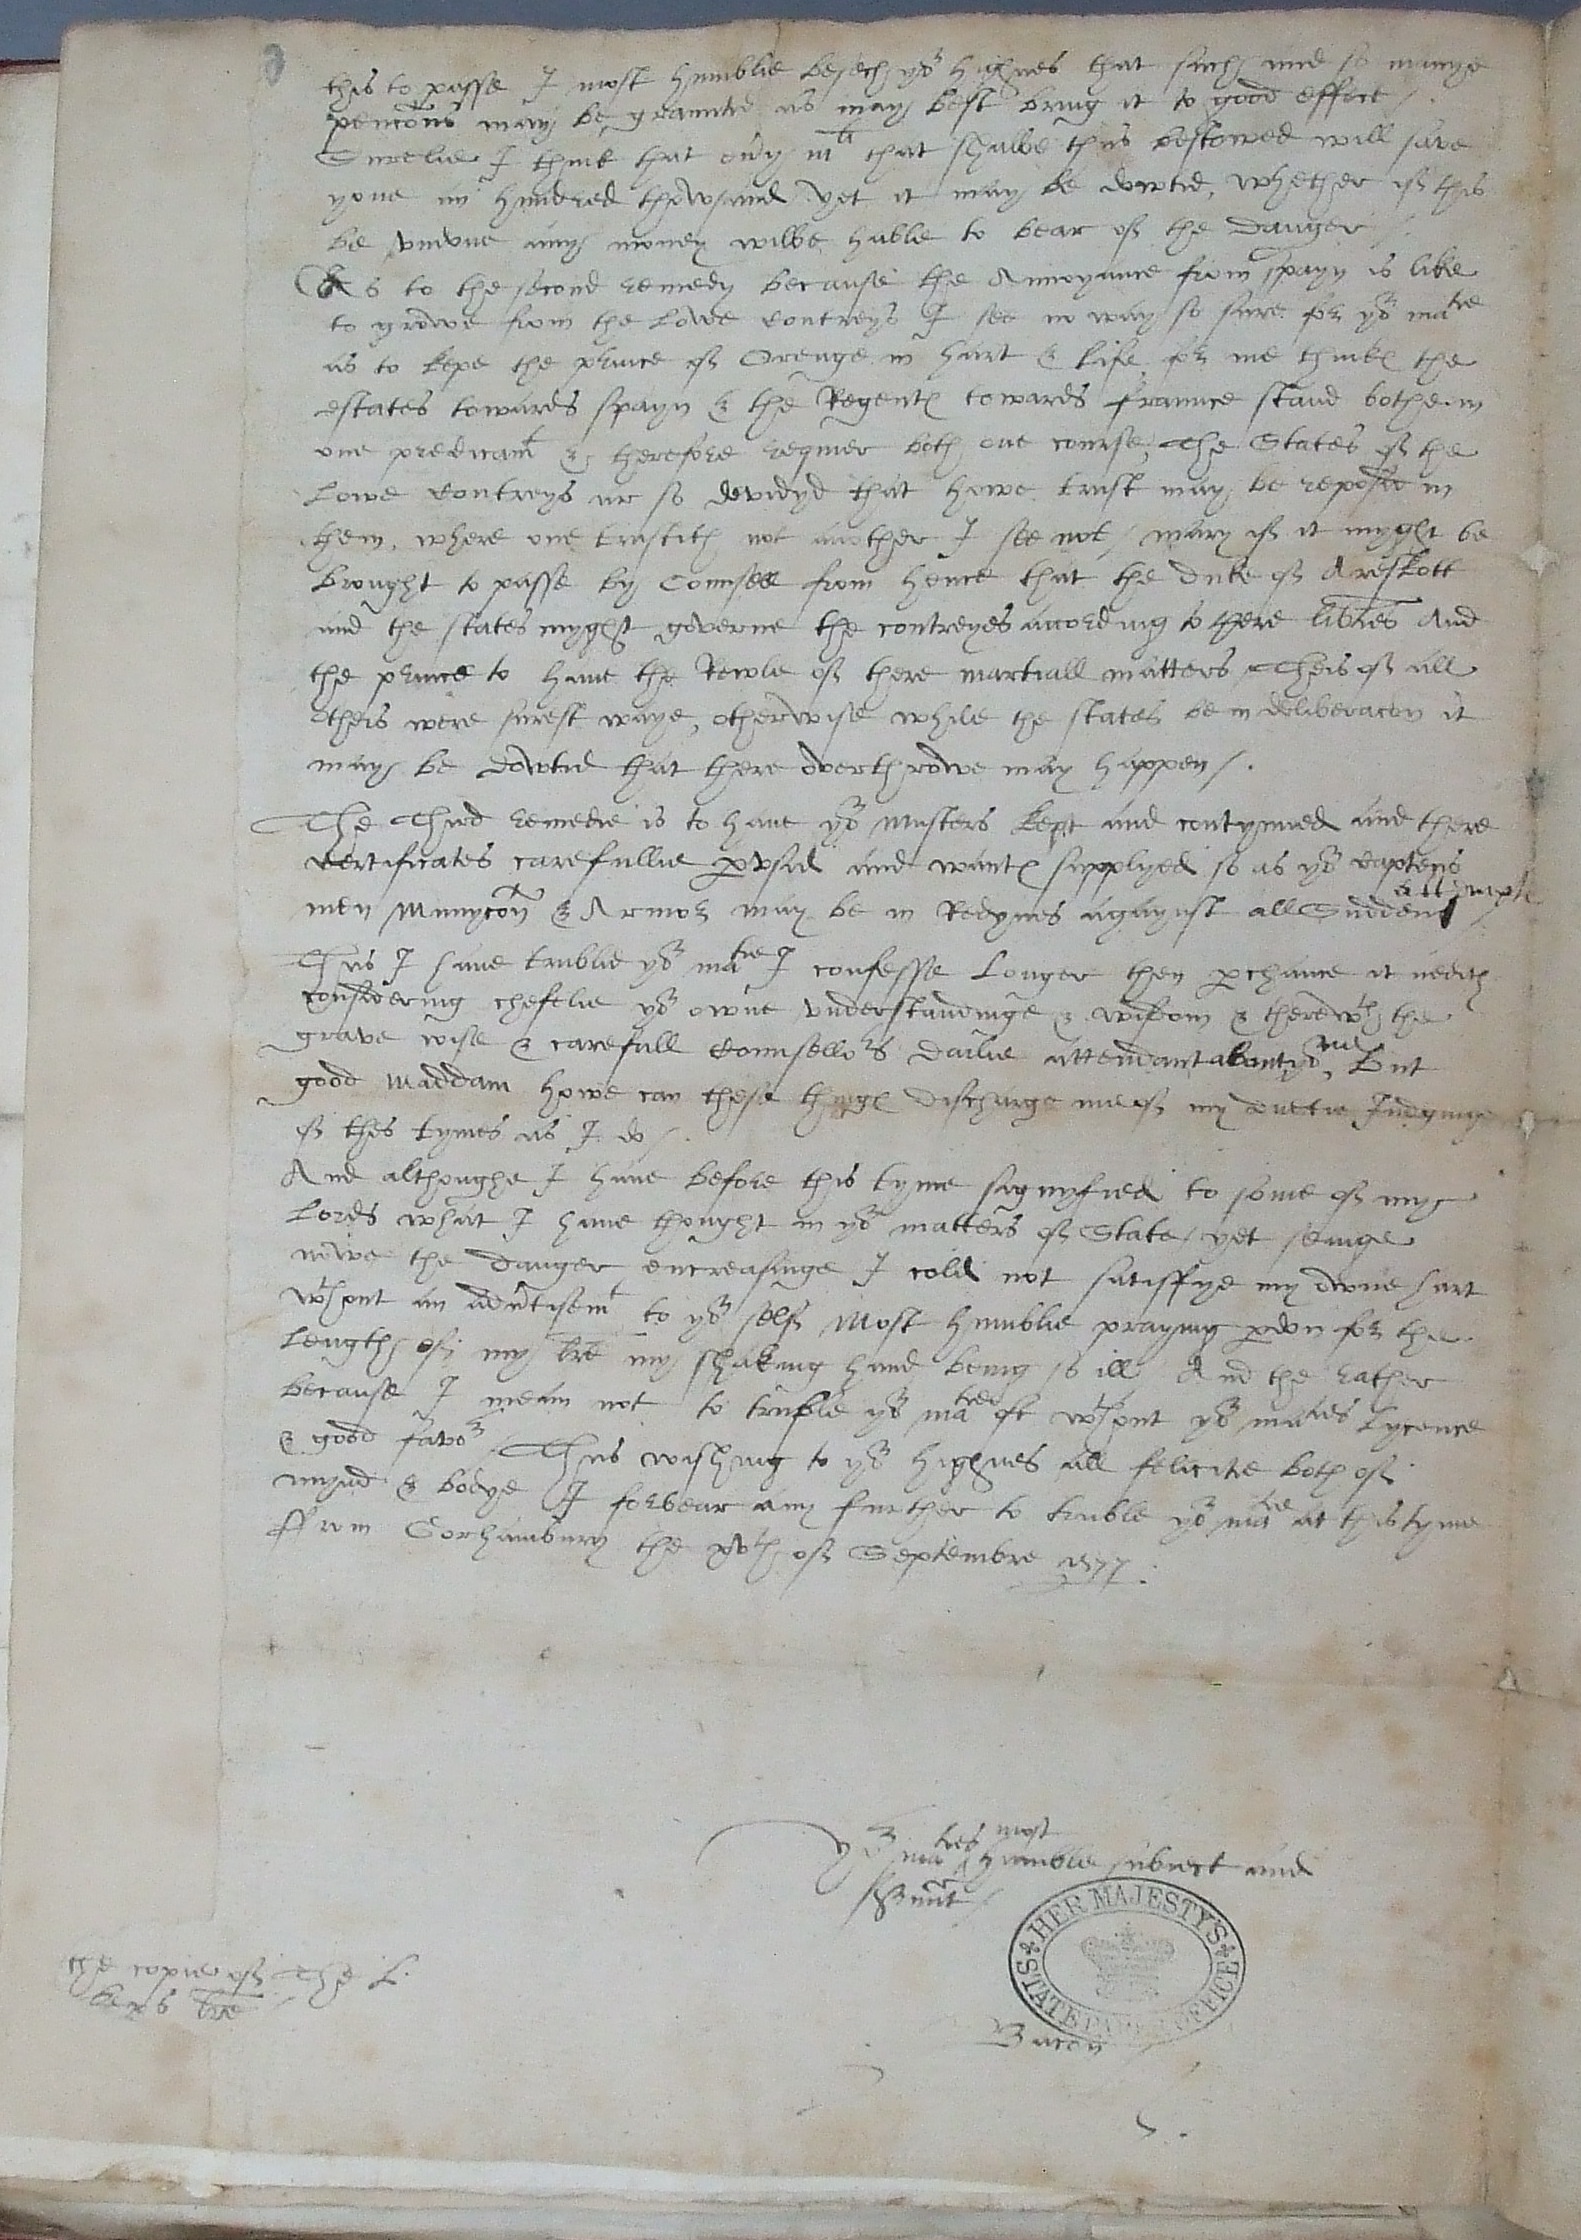 this to passe I most humblie besech yor highnes that such and so manye
pencons may be grauntid as may best bring it to good effect /.
Surelie I think that every mli that shalbe thus bestowed will save
youe an hundred thowsand yet it may be dowtid, whether if this
be undone any money wilbe hable to bear of the danger /.
As to the second remedy because the Annoyance from spayn is like
to growe from the Lowe contreys I see no way so sure for yor matie
as to kepe the prince of Orenge in hart & life for me thinkes the
estates towards spayn & the Regent towards fraunce stand bothe in
one predicamt & therefore requier both one course, The States of the
Lowe contreys ar so devidyd that howe trust may be reposid in
them, where one trustith not another I see not / mary if it myght be
brought to passe by Counsell from hence that the duke of Areskott
and the states myght governe the contreyes according to there libties And
the prince to have the Rewle of there martiall matters Theis of all
otheis were surest waye, otherwise while the states be in deliberacon it
may be dowtid that there overthrowe may happen /.
The Third remedie is to have yor musters kept and contynued and there
certificates carefullie pvsid and wantes supplyed so as yor captens
men Munycon & Armor may be in Redynes agaynst all Sudden attempts /
Thus I have trublid yor matie I confesse Longer then pchance it nedith
considering chefelie yor owne understandinge & wisdom & therewth the
grave wise & carefull counsellors dailie attendant about yor matie But
good Maddam howe can these thinges discharge me of my duetie Judginge
of thes tymes as I do /.
And althoughe I have before this tyme signyfied to some of my
Lords what I have thought in yor matters of State / yet seinge
nowe the danger encreasinge I cold not satisfye my owne hart
wthout an advtisemt to yor self Most humblie praying pdon for the
Length of my lre my shaking hand being so ill And the rather
because I mean not to truble yor matie oft wthout yor maties Lycence
& good favor / Thus wishing to yor highnes all felicitie both of
mynd & bodye I forbear any further to truble yor matie at this tyme
ffrom Gorhambury the xvth of Septembre 1577.
Yor maties most humble subiect and
servnt /
HER MAJESTY'S STATE PAPER OFFICE
Bacon
the copie of The L.
keps lre